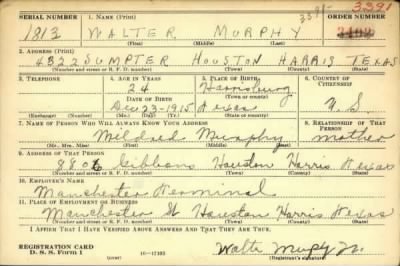 3395 3391
SERIAL NUMBER 1. NAME (Print) ORDER NUMBER
1813 WALTER MURPHY
(First) (Middle) (Last)
2. ADDRESS (Print)
4322 SUMPTER HOUSTON HARRIS TEXAS
(Number and street or R. F. D. number) (Town) (County) (State)
3. TELEPHONE 4. AGE IN YEARS 5. PLACE OF BIRTH 6. COUNTRY OF CITIZENSHIP
24 Harrisburg
(Town or county)
DATE OF BIRTH
Dec 23-1915 Texas U.S.
(Exchange) (Number) (Mo.) (Day) (Yr.) (State or country)
7. NAME OF PERSON WHO WILL ALWAYS KNOW YOUR ADDRESS 8. RELATIONSHIP OF THAT PERSON
Mildred Murphy mother
(Mr., Mrs., Miss) (First) (Middle) (Last)
9. ADDRESS OF THAT PERSON
8806 Gibbons Houston Harris Texas
(Number and street or R. F. D. number) (Town) (County) (State)
10. EMPLOYER'S NAME
Manchester Terminal
11. PLACE OF EMPLOYMENT OR BUSINESS
Manchester St Houston Harris Texas
(Number and street or R. F. D. number) (Town) (County) (State)
I AFFIRM THAT I HAVE VERIFIED ABOVE ANSWERS AND THAT THEY ARE TRUE.
REGISTRATION CARD
D. S. S. FORM 1 (over) 16-17105 Walter Murphy Jr.
(Registrant's signature)